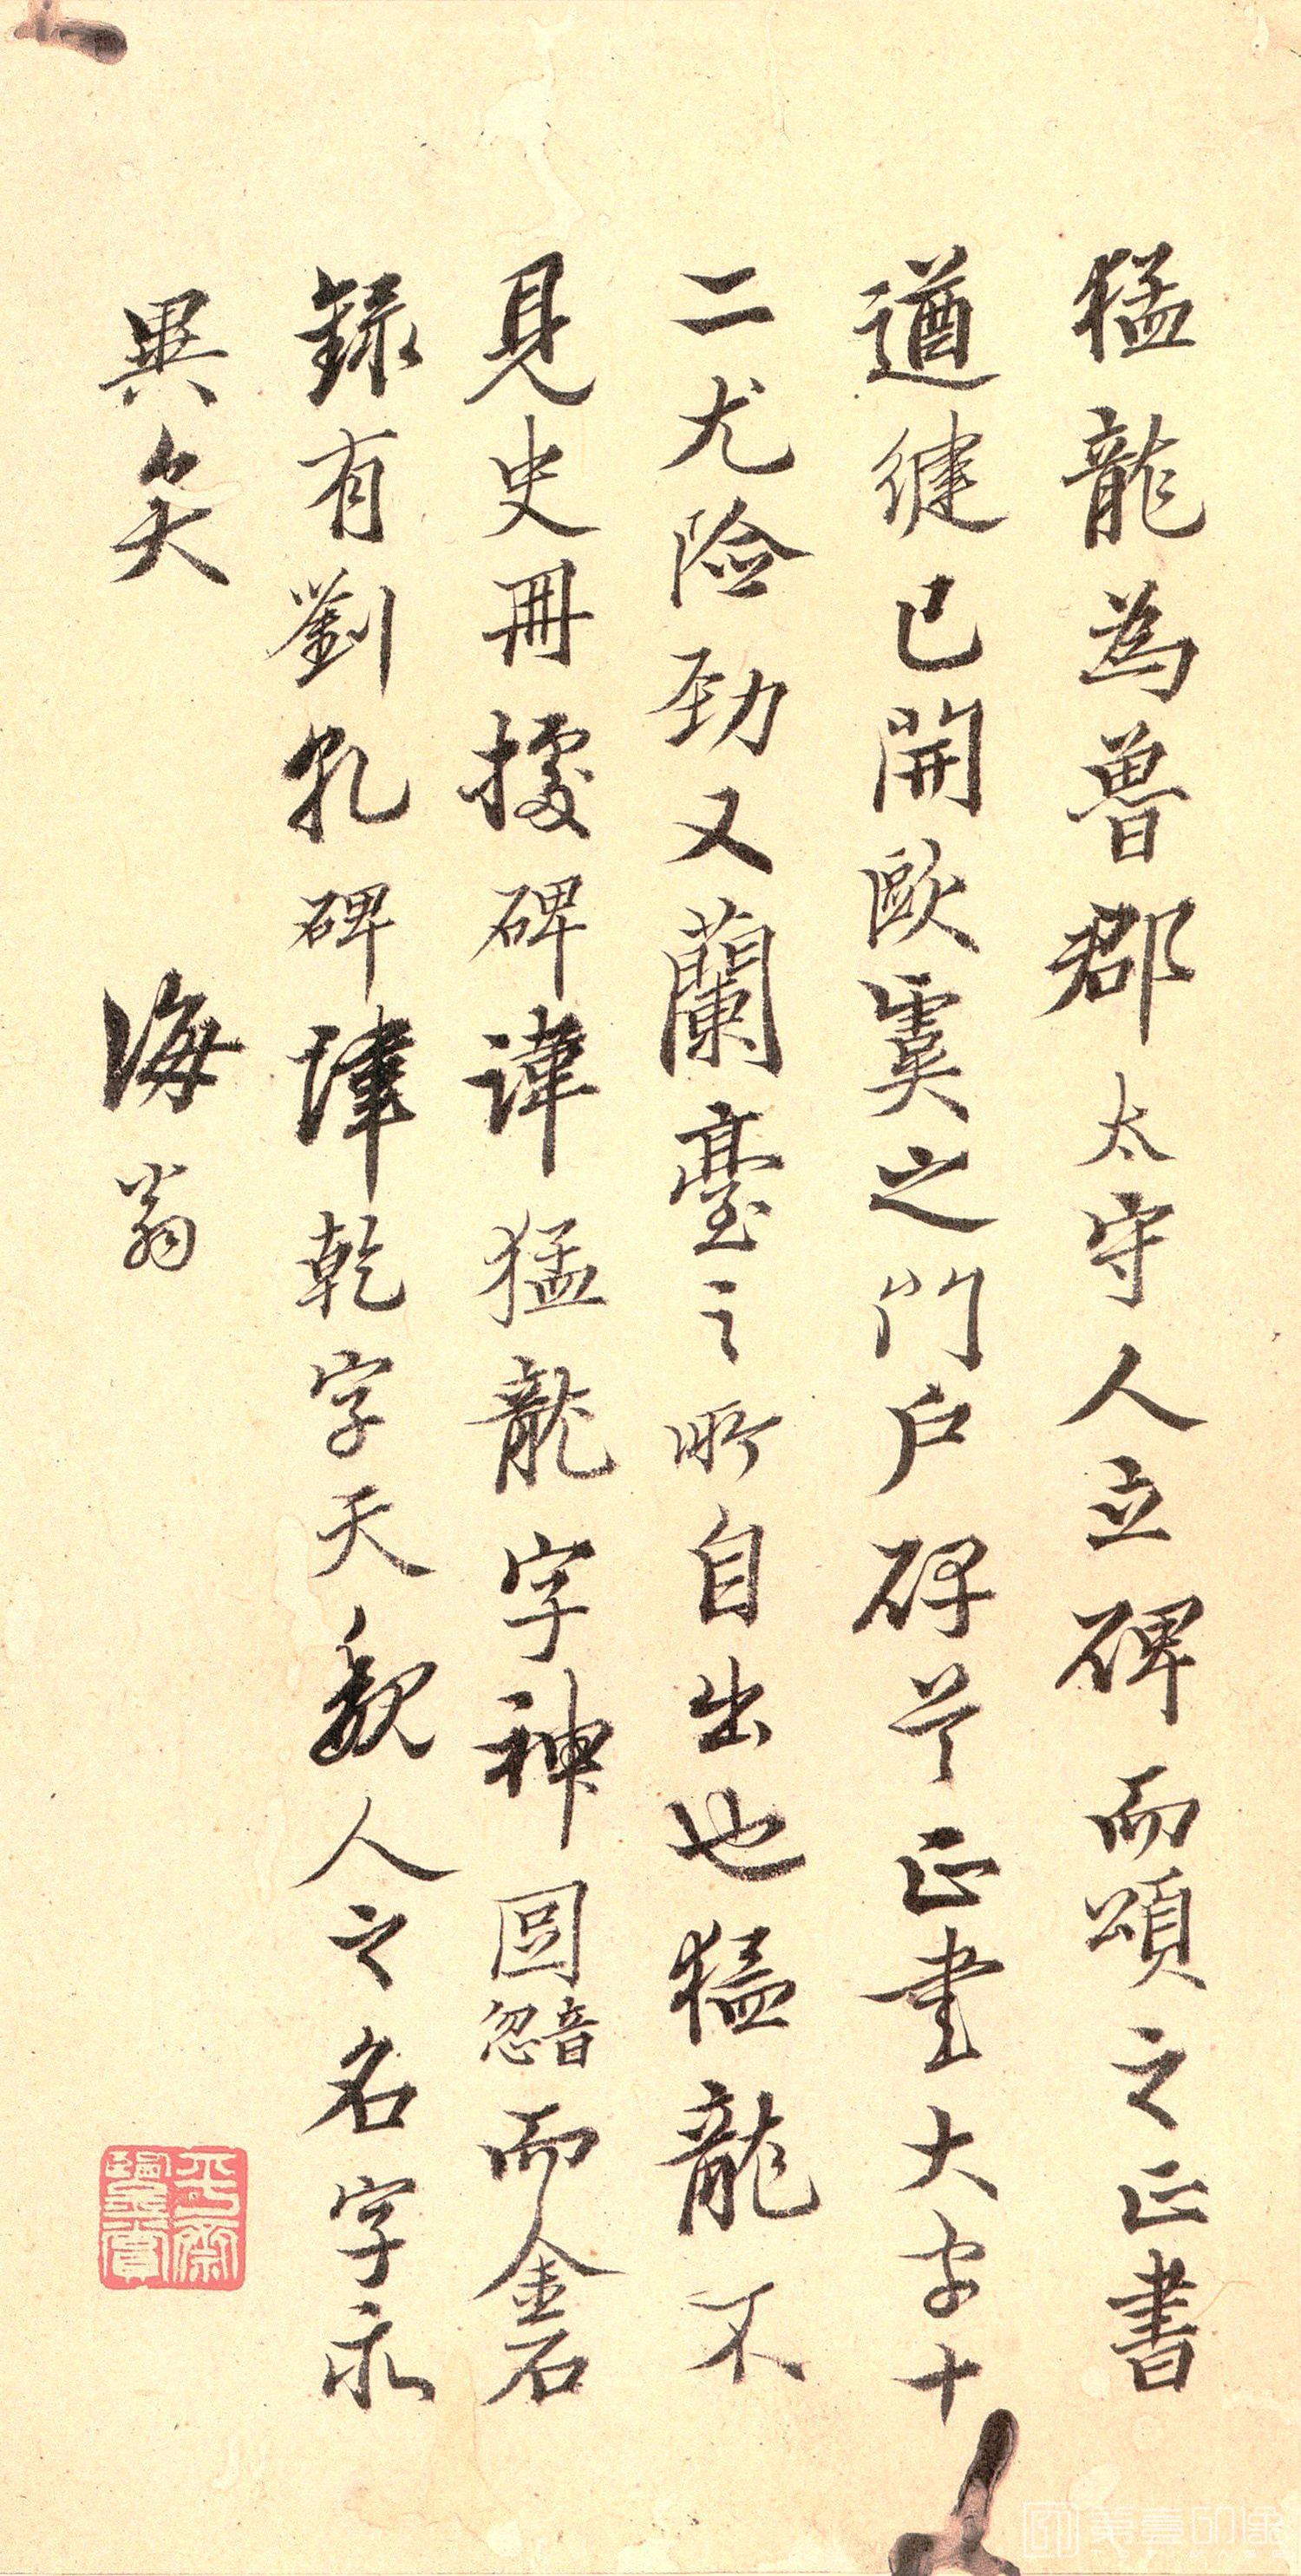 猛龍為魯郡太守人立碑而頌之正書
遒健已開歐虞之門戶碑首正書大字十
二尤險勁又蘭臺之所自出也猛龍不
見史冊據碑諱猛龍字神囧音忽而金石
錄有劉乾碑諱乾字天魏人之名字亦
異矣
海翁